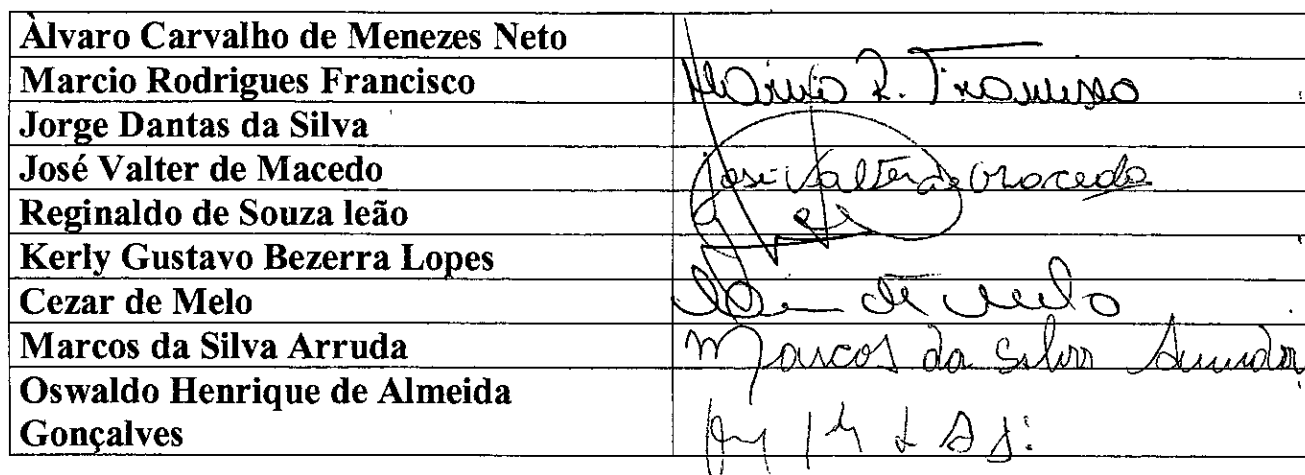 Àlvaro Carvalho de Menezes Neto
Marcio Rodrigues Francisco Marcio R. Francisco
Jorge Dantas da Silva
José Valter de Macedo José Valter de Macedo
Reginaldo de Souza leão
Kerly Gustavo Bezerra Lopes
Cezar de Melo de Melo
Marcos da Silva Arruda Marcos da Silva Arruda
Oswaldo Henrique de Almeida
Gonçalves